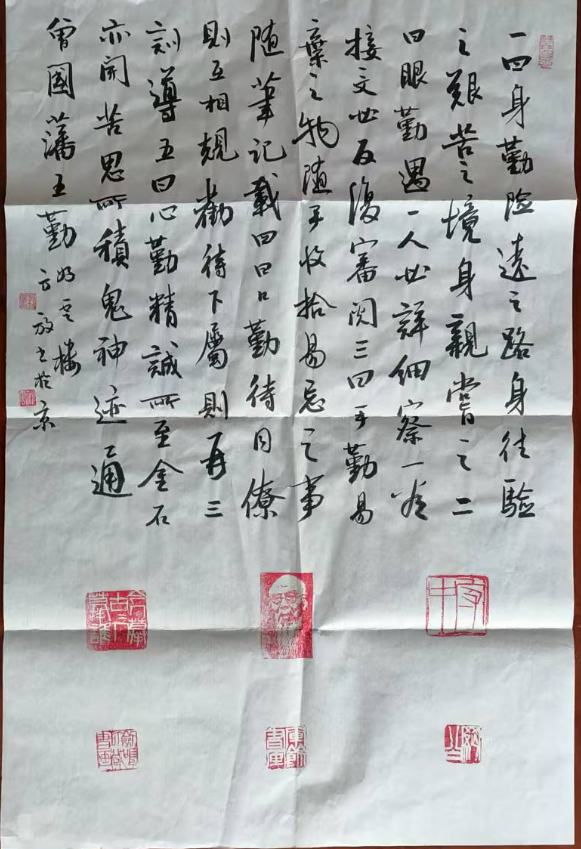 一曰身勤险远之路身往驗
之艱苦之境身親嘗之二
曰眼勤遇一人必詳細察一卷
接文必反復審閱三曰手勤易
棄之物随手收拾易忘之事
随筆記載四曰口勤待同僚
則互相規勸待下屬則再三
訓導五曰心勤精誠所至金石
亦開苦思所積鬼神迹通
曾國藩五勤